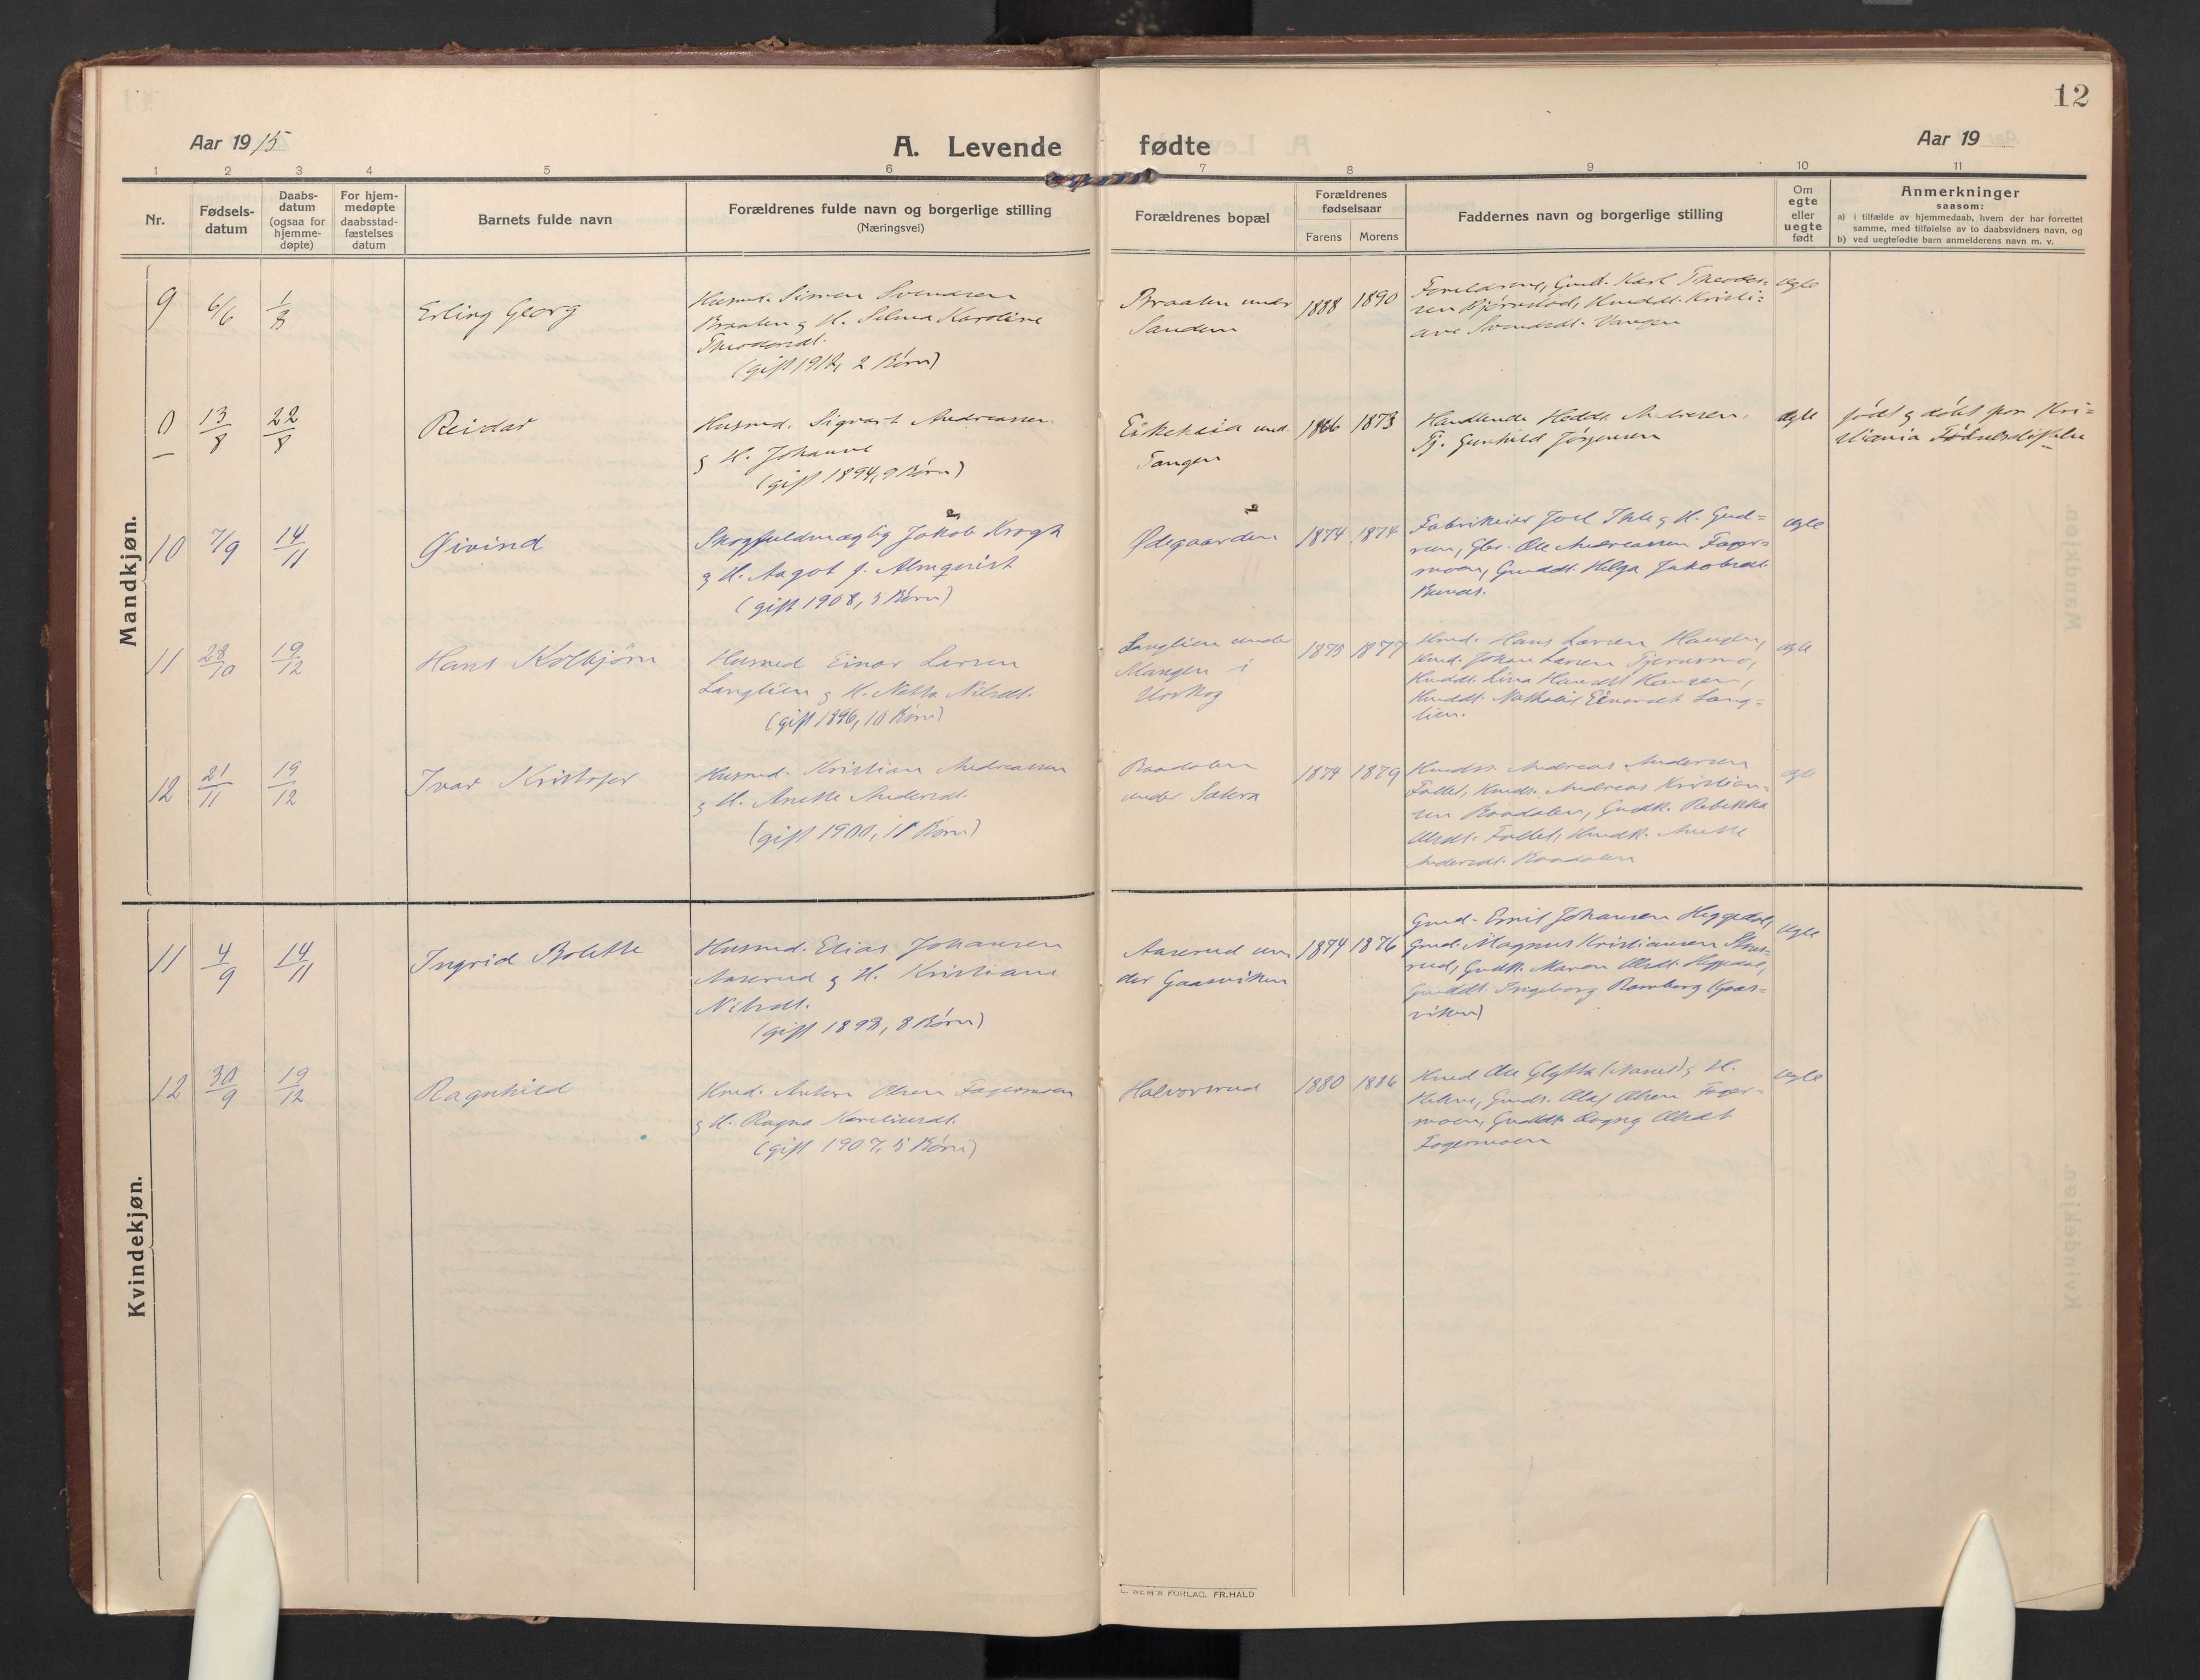 12
Aar 1915
A. Levende fødte
Aar 19
1 2 3 4 5 6 7 8 9 10 11
Nr.
Fødsels-
datum
Daabs-
datum
(ogsaa for
hjemme-
døpte)
For hjem-
medøpte
daabsstad-
fæstelses
datum
Barnets fulde navn
Forældrenes fulde navn og borgerlige stilling
(Næringsvei)
Forældrenes bopæl
Forældrenes
fødselsaar
Farens Morens
Faddernes navn og borgerlige stilling
Om
egte
eller
uegte
født
Anmerkninger
saasom:
a) i tilfælde av hjemmedaab, hvem der har forrettet
samme, med tilføielse av to daabsvidners navn, og
b) ved uegtefødte barn anmelderens navn m. v.
Mandkjøn.
9 6/6 1/8
Erling Georg
Husmd. Simen Svendsen
Braaten g H. Selma Karoline
Theodorsdt.
(gift 1912, 2 Børn)
Braaten under
Sandem
1888 1890
Forældrene, Gmd. Karl Theodor=
sen Bjørnstad, Kmddt. Kristi=
ane Svendsdt. Vangen
Egte
0 13/8 22/8
Reidar
Husmd. Sigvart Andreassen
g H. Johanne
(gift 1894, 9 Børn)
Eikeheia und.
Tangen
1866 1873
Handlende Andresen,
Tj. Gunhild Jørgensen
Egte
født g døbt paa Kri=
stiania Fødselsstiftelse
10 7/9 14/11
Øivind
Skogfuldmægtig Jakob Krogh
g H. Aagot f. Almquist
(gift 1908, 5 Børn)
Ødegaarden
1874 1874
Fabrikeier Joel g H. Gud=
run, Gbr. Ole Andreassen Fager=
moen, Gmddt. Helga Jakobsdt.
Egte
11 28/10 19/12
Hans Kolbjørn
Husmd Einar Larsen
Langlien g H. Netta Nilsdt.
(gift 1896, 10 Børn)
Langlien under
Mangen i
Urskog
1873 1877
Kmd. Hans Larsen Haugen,
Kmd. Johan Larsen
Kmddt. Lina Hansdt Haugen,
Kmddt. Einarsdt Lang=
lien.
Egte
12 21/11 19/12
Ivar Kristofer
Husmd. Kristian Andreassen
g H. Anette Andersdt.
(gift 1900, 11 Børn)
Raadalen
under Sætra
1874 1879
Kmds. Andreas Andersen
Kmds. Andreas Kristian=
sen Raadalen, Gmdk. Rebekka
Olsdt. Kmdk. Anette
Andersdt. Raadalen
Egte
Kvindekjøn.
11 4/9 14/11
Ingrid Bolette
Husmd. Elias Johansen
Aaserud g H. Kristiane
Nilsdt.
(gift 1898, 8 Børn)
Aaserud un
der Gaasviken
1874 1876
Gmd. Emil Johansen Heggedal,
Gmd. Magnus Kristiansen
rud, Gmdk. Maren Olsdt. Heggedal,
Gmddt. Ingeborg Ramberg (Gaas=
viken)
Egte
12 30/9 19/12
Ragnhild
Kmd. Anders Olsen Fagermoen
g H. Ragna Kareliusdt.
(gift 1907, 5 Børn)
Halvorsrud
1880 1886
Kmd Ole g H.
Gmds. Olaf Olsen Fager=
moen, Gmddt. Olsdt
Fagermoen
Egte
E. SEM'S FORLAG. FR.HALD